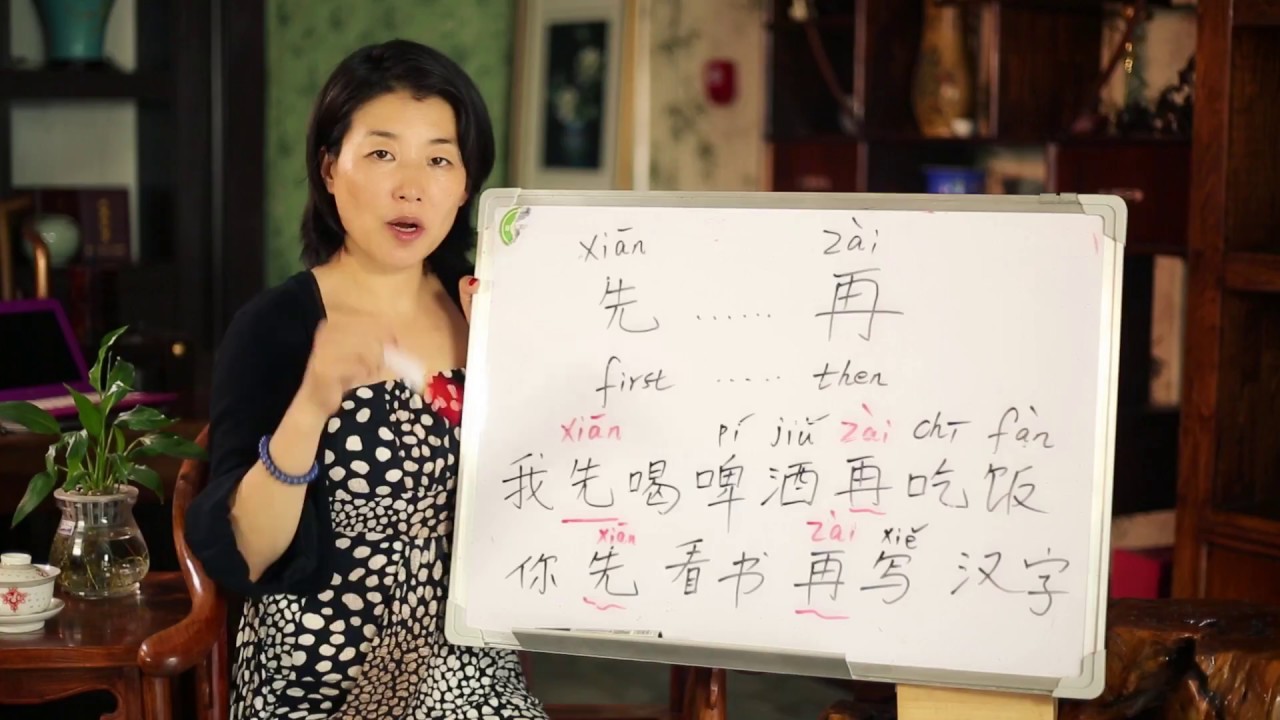 xiān zài
先 ...... 再
first ..... then
xiān pí jiǔ zài chī fàn
我先喝啤酒再吃饭
xiān zài xiě
你先看书再写汉字